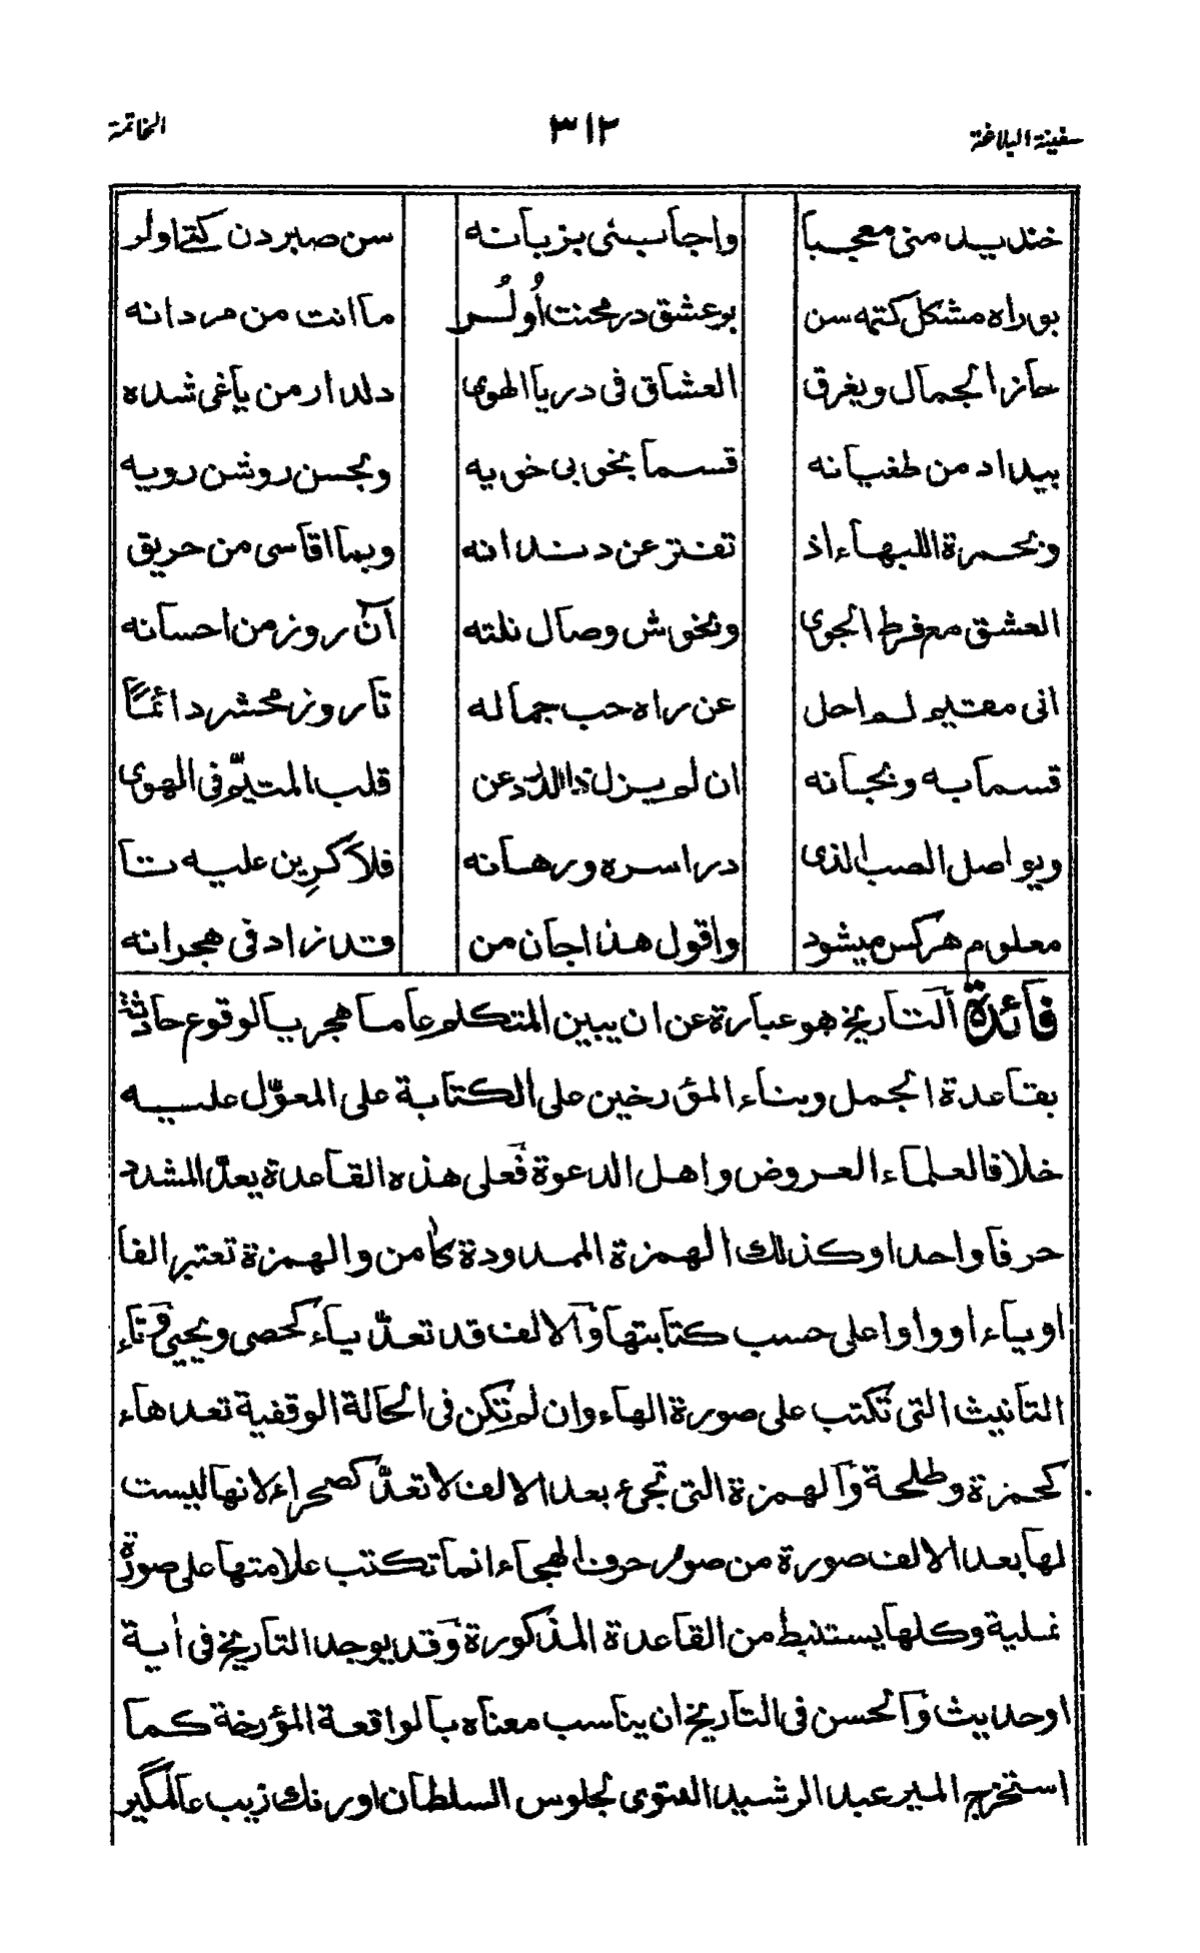 سفينة البلاغة ٣١٢ الخاتمة
خنديد منى معجبا واجابنى بزبانه سن صبردن كتے اولر
بوراه مشكل كتمه سن بوعشق در محنت أولُر ما انت من مردانه
حاز الجمال ويغرق العشاق فى دريا الهوى دلدار من ياغى شده
بيداد من طغيانه قسما بخوبى خويه وبحسن روشن رويه
وبحمرة اللبهاء اذ تفتر عن دندانه وبما اقاسى من حريق
العشق مع فرط الجوى وبخوش وصال نلته آن روز من احسانه
انى مقيم لم احل عن راه حب جماله تا روز محشر دائمًا
قسما به وبجانه ان لم يزل ذا عن قلب المتيّم فى الهوى
ويواصل الصب الذى در اسره ورهانه فلاكرِين عليه تا
معلوم هركس ميشود واقول هذا جان من قد زاد فى هجرانه
فائدة التاريخ هو عبارة عن ان يبين المتكلم عاما هجريا لوقوع حادثة
بقاعدة الجمل وبناء المؤرخين على الكتابة على المعوّل عليه
خلافا لعلماء العروض واهل الدعوة فعلى هذه القاعدة يعدّ المشدد
حرفا واحدا وكذلك الهمزة الممدودة كاٰمن والهمزة تعتبر الفا
او ياء او واوا على حسب كتابتها والالف قد تعدّ ياء كحصى ويحيى وتاء
التأنيث التى تكتب على صورة الهاء وان لم تكن فى الحالة الوقفية تعد هاء
كحمزة وطلحة والهمزة التى تجىء بعد الالف لا تعدّ كصحراء لانها ليست
لها بعد الالف صورة من صور حروف الهجاء انما تكتب علامتها على صورة
نملية وكلها يستنبط من القاعدة المذكورة وقد يوجد التاريخ فى اٰية
او حديث والحسن فى التاريخ ان يناسب معناه بالواقعة المؤرخة كما
استخرج المير عبد الرشيد التتوى لجلوس السلطان اورنك زيب عالمگير